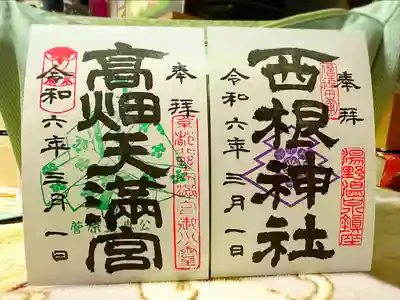 奉拝
西根神社
令和六年三月一日
湯野温泉鎮座
奉拝
高畑天満宮
令和六年三月一日